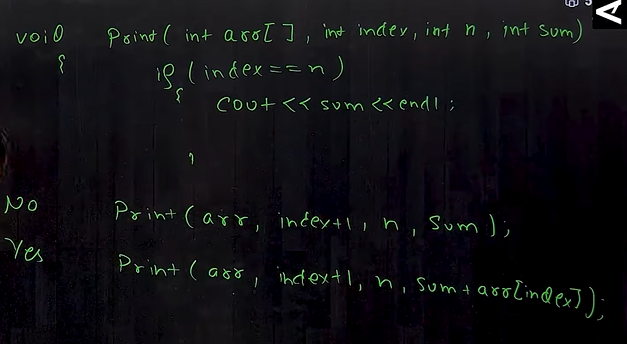 void Print( int arr[ ] , int index, int n , int sum)
{
if ( index == n )
{
cout << sum << endl ;
No Print ( arr, index+1 , n , sum );
Yes Print ( arr , index+1, n, sum + arr[index]);